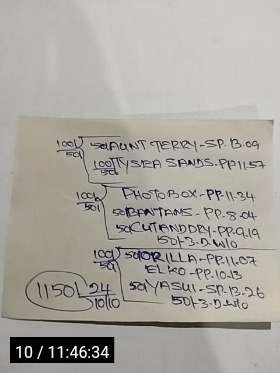 100/ 50 AUNT TERRY-SP.13.09
50 100 TYSEA SANDS-PP.11.57
100/ PHOTOBOX-PP.11.34
50/ 50 BANTAMS-PP-8.04
50 CUTANDDRY-PP.9.19
50/-3.D.W/O
100/ 50 ORILLA-PP.11.07
50 ELKO-PP.10.13
1150/ 24 50 YASUI-SP.13.26
10/10 50/-3.D.W/O
10 / 11:46:34